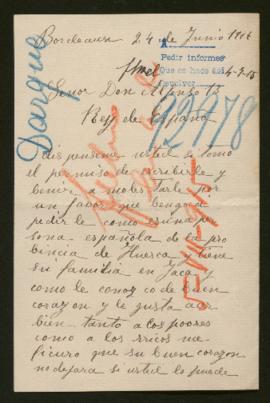 Bordeaux 24 de Junio 1916
Pedir informes
Que se hace
devolver 4-7-16
Señor Don Alfonso 13
Rey de España
Darque
92978
dispensara usted si tomo
el permiso de escribirle y
benir a molestarle por
un fabor que bengo a
pedirle como es una per
sona española de la pro
bincia de Huesca y tiene
su familia en Jaca y
como le conozco de buen
corazon y le gusta acer
bien tanto a los poores
como a los rricos me
ficuro que su buen corazon
no dejara si usted lo puede